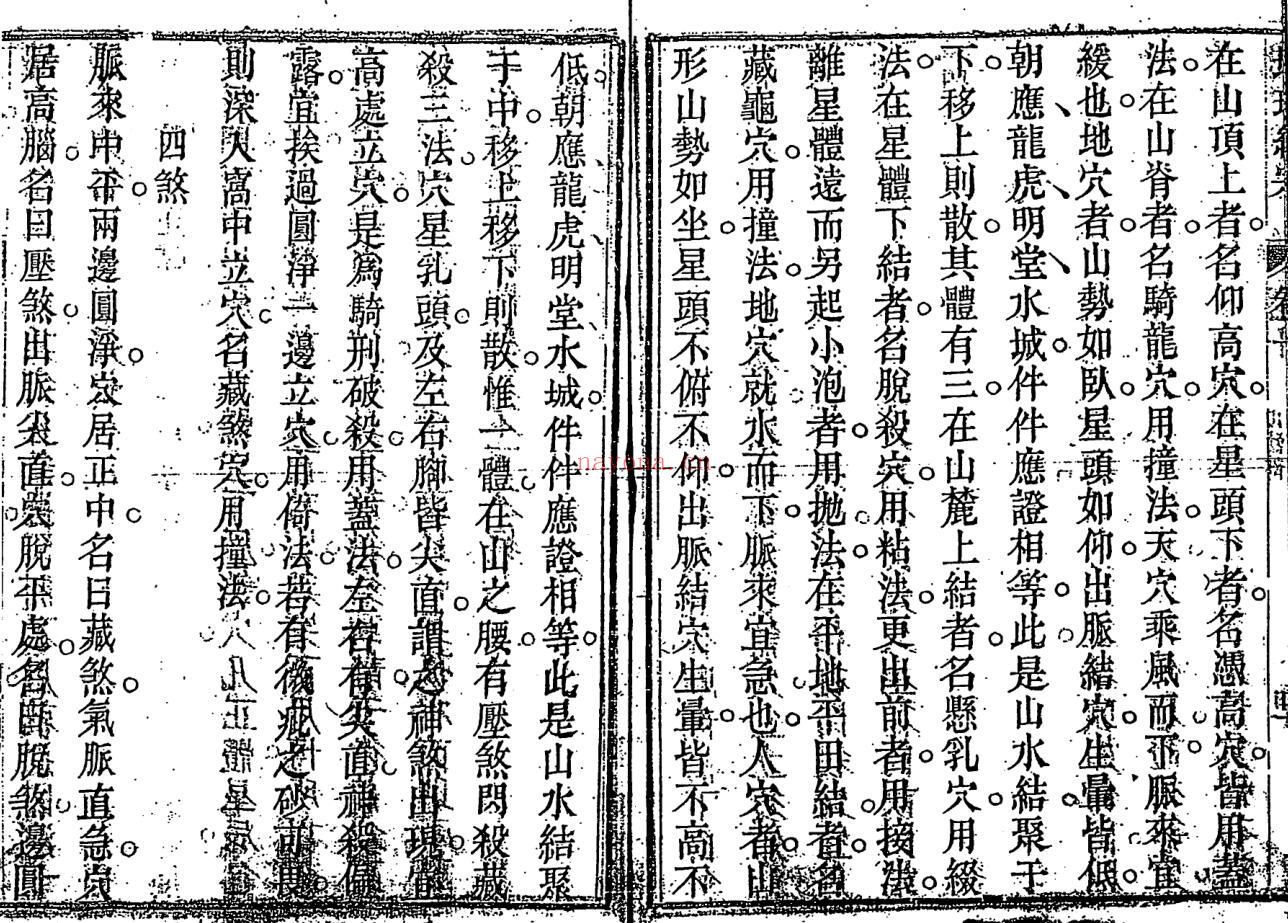 在山頂上者名仰高穴在星頭下者名憑高穴皆用蓋
法在山脊者名騎龍穴用撞法天穴乘風而下脈來宜
緩也地穴者山勢如臥星頭如仰出脈結穴生暈皆低
朝應龍虎明堂水城件件應證相等此是山水結聚于
下移上則散其體有三在山麓上結者名懸乳穴用綴
法在星體下結者名脫殺穴用粘法更出前者用接法
離星體遠而另起小泡者用拋法在平地平田結者名
藏龜穴用撞法地穴就水而下脈來宜急也人穴者山
形山勢如坐星頭不俯不仰出脈結穴生暈皆不高不
低朝應龍虎明堂水城件件應證相等此是山水結聚
于中移上移下則散惟一體在山之腰有壓煞閃殺藏
殺三法穴星乳頭及左右腳皆尖直謂之神煞出現
高處立穴是為騎刑破殺用蓋法左右有尖直神殺偏
露宜挨過圓淨一邊立穴用倚法若有微疵之破
則深入窩中立穴名藏煞穴用撞法
四煞
脈來中帶兩邊圓淨穴居正中名曰藏煞氣脈直急穴
居高腦名曰壓煞出脈尖直穴脫平處名曰脫煞邊圓
nayona.cn